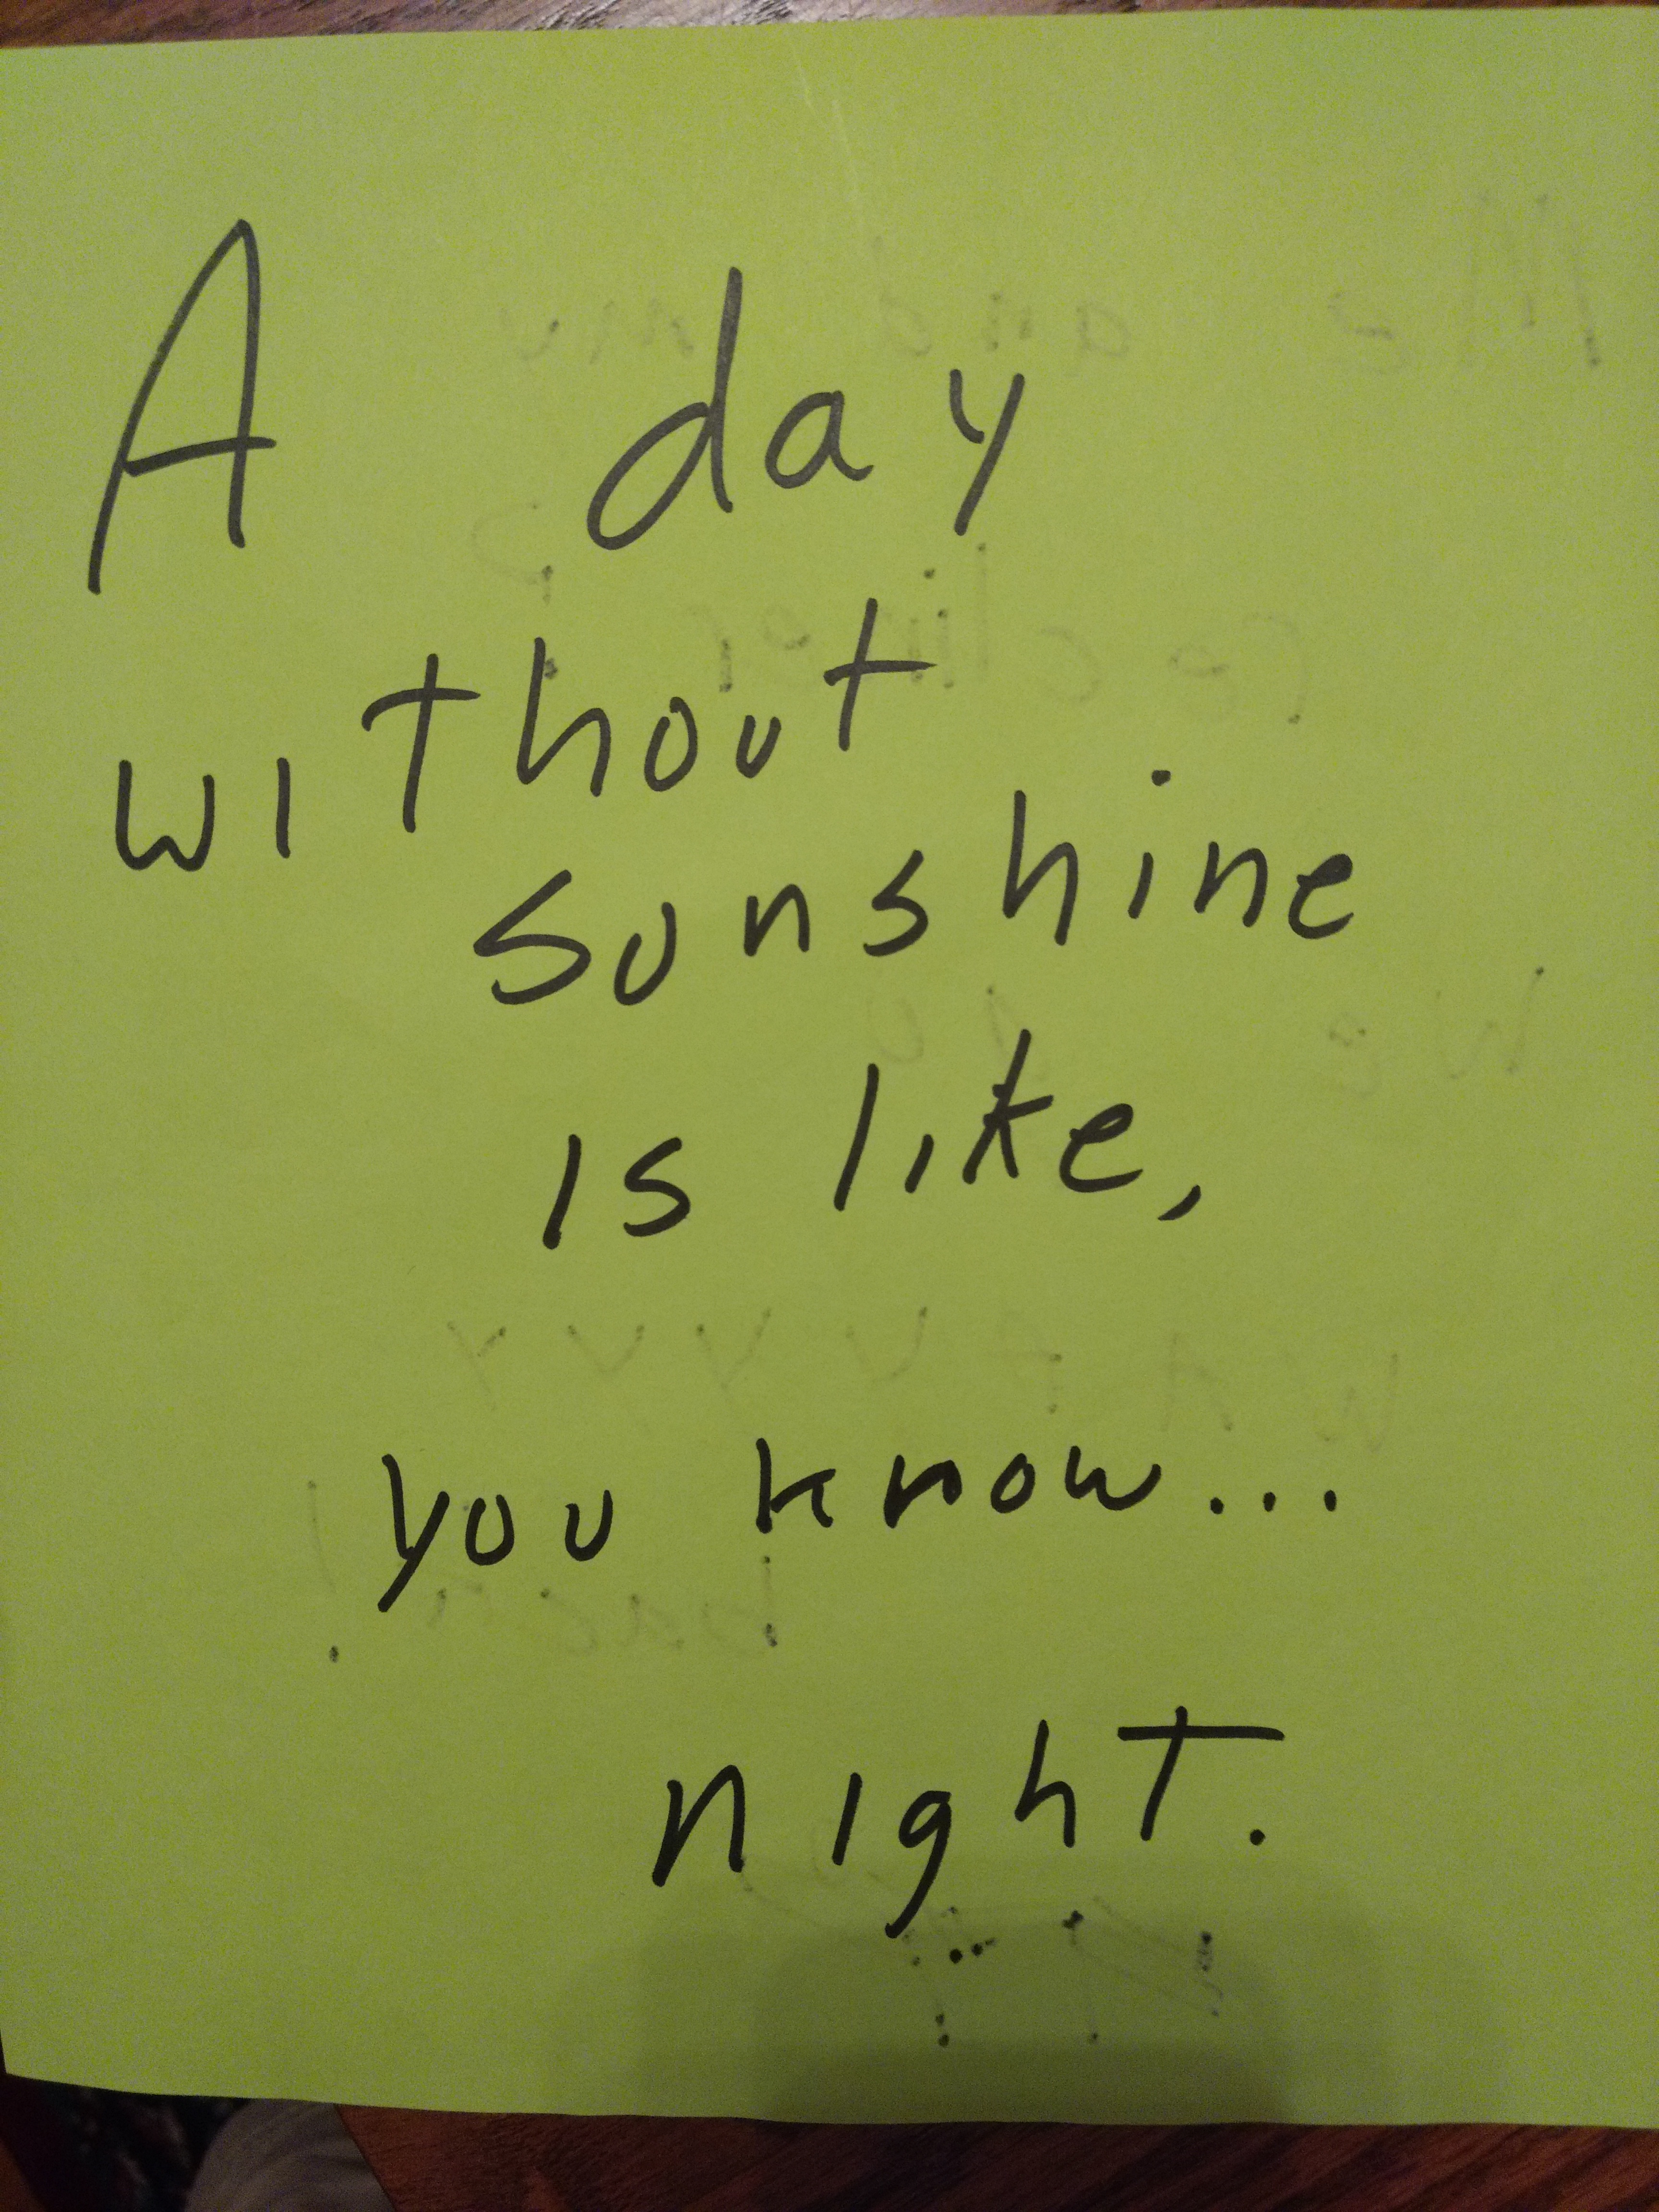 A day
without
sunshine
is like,
you know...
night.